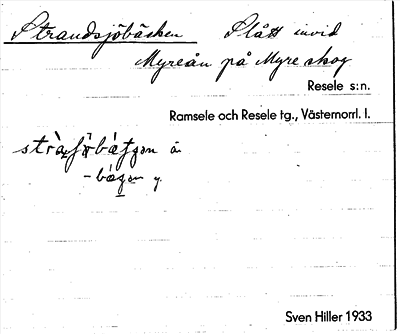 Strandsjöbäcken Slått invid
Myreån på Myre skog
Resele s:n.
Ramsele och Resele tg., Västernorrl. l.
Sven Hiller 1933